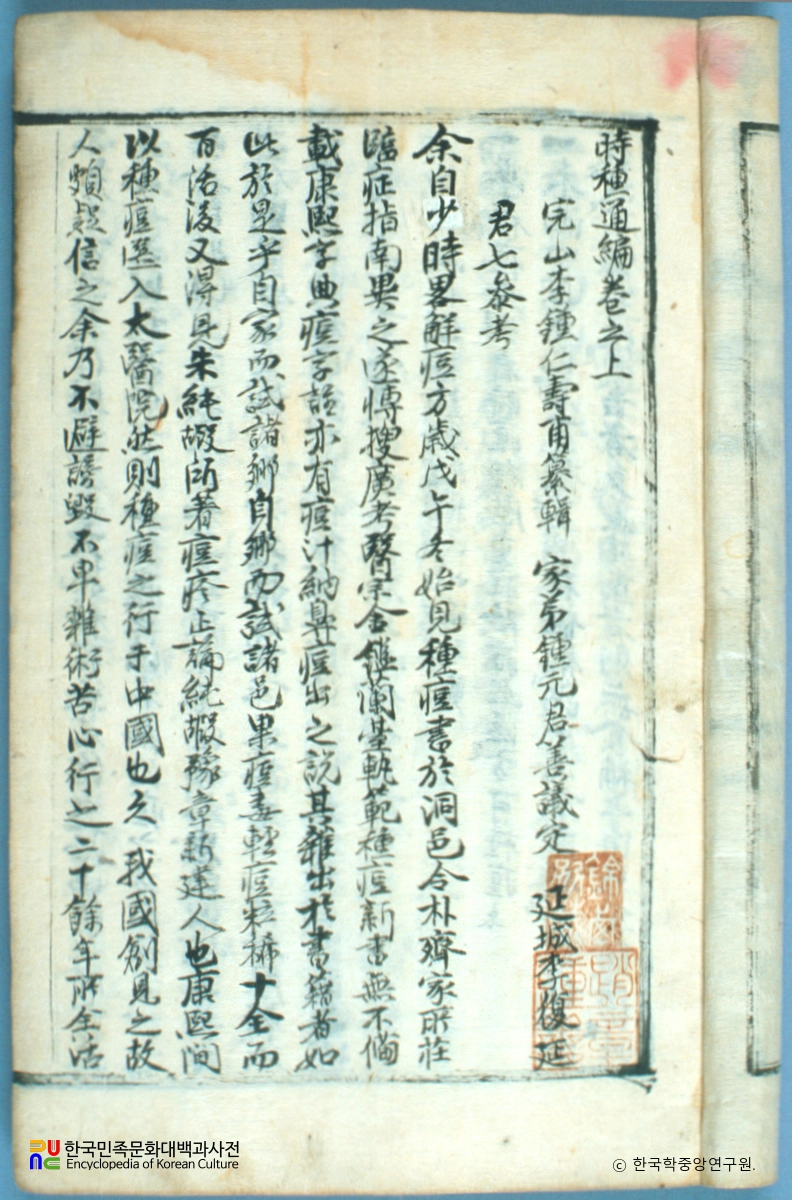 時種通編卷之上
完山李鍾仁壽甫纂輯 家弟鍾元君善議定 延城李復延
君七參考
余自少時畧解痘方歲戊午冬始見種痘書於洞邑令朴齊家所莊
臨症指南異之遂慱搜廣考醫宗金鑑蘭臺軌範種痘新書無不備
載康熙字典痘字註亦有痘汁納鼻痘出之說其雜出於書籍者如
此於是乎自家而試諸鄉自鄉而試諸邑果痘毒輕痘粒稀十全而
百活後又得見朱純嘏所著痘疹正論純嘏豫章新建人也康熙間
以種痘選入太醫院然則種痘之行于中國也久 我國創見之故
人頗疑信之余乃不避謗毀不卑雜術苦心行之二十餘年所全活
한국민족문화대백과사전
Encyclopedia of Korean Culture
ⓒ 한국학중앙연구원.